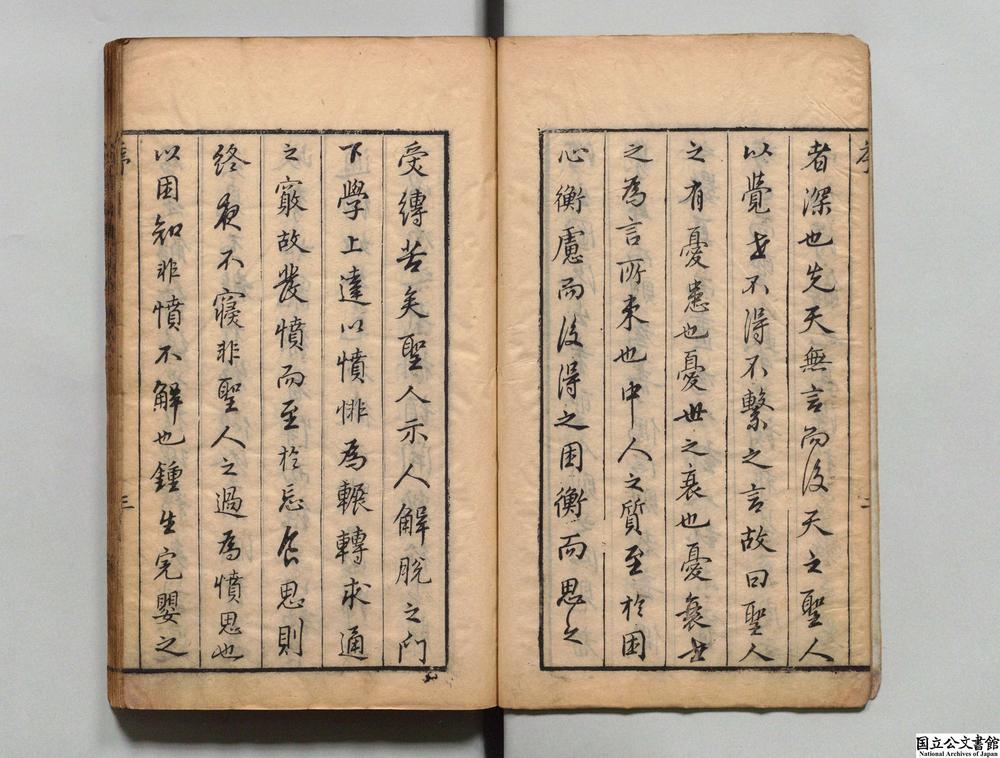 者深也先天無言而後天之聖人
以覺世不得不繫之言故曰聖人
之有憂患也憂世之衰也憂衰世
之為言所束也中人之質至於困
心衡慮而後得之困衡而思之
受縛苦矣聖人示人解脫之門
下學上達以憤悱為輾轉求通
之竅故發憤而至於忘食思則
終夜不寢非聖人之過為憤思也
以困知非憤不解也鍾生完嬰之
序
三
国立公文書館
National Archives of Japan